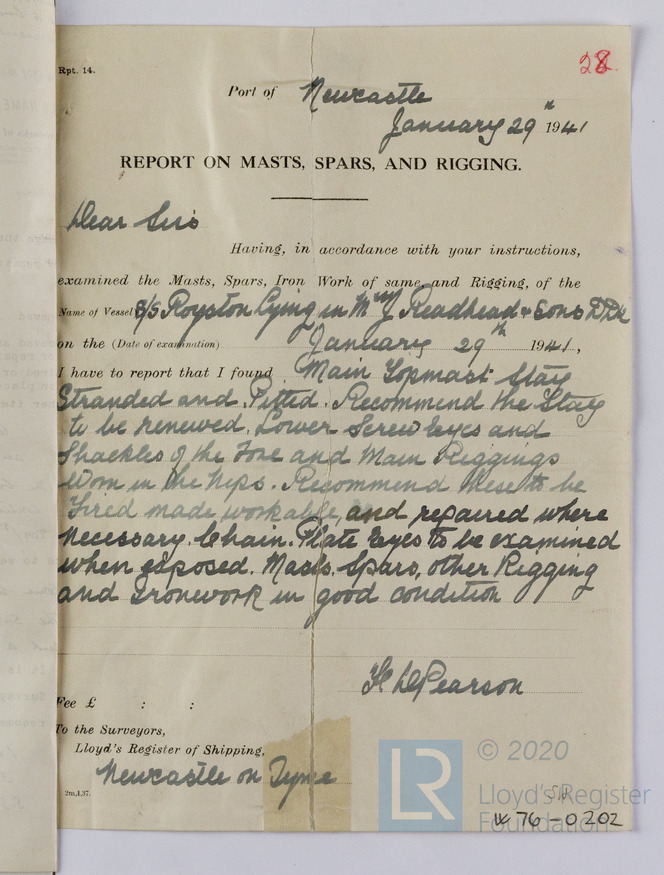 Rpt. 14.
28.
Port of Newcastle
January 29th 1941
REPORT ON MASTS, SPARS, AND RIGGING.
Dear Sirs
Having, in accordance with your instructions,
examined the Masts, Spars, Iron Work of same, and Rigging, of the
Name of Vessel S/S Royston Lying in Messrs J Readhead & Sons D.Dk
on the (Date of examination) January 29th 1941,
I have to report that I found Main Topmast Stay
Stranded and Pitted. Recommend the Stay
to be renewed. Lower Screw Eyes and
Shackles of the Fore and Main Riggings
Worn in the Nips. Recommend these to be
Fired made workable, and repaired where
necessary. Chain. Plate Eyes to be examined
when exposed. Masts, Spars, other Rigging
and Ironwork in good condition
Pearson
Fee £ : :
To the Surveyors,
Lloyd's Register of Shipping,
Newcastle on Tyne
2m,1,37.
LR © 2020
Lloyd's Register
Foundation
76-0202